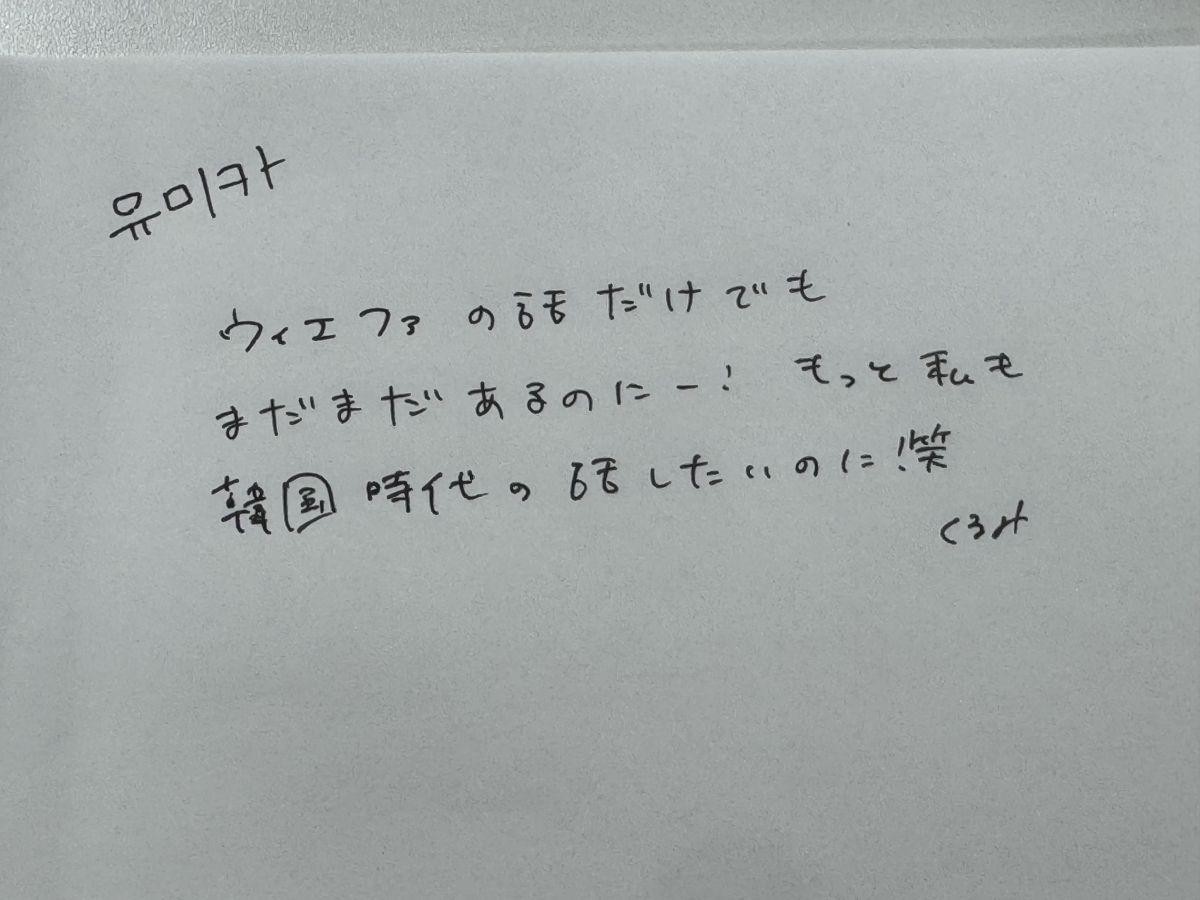 유미카
ウィエファの話だけでも
まだまだあるのにー! もっと私も
韓国時代の話したいのに!笑
くるみ